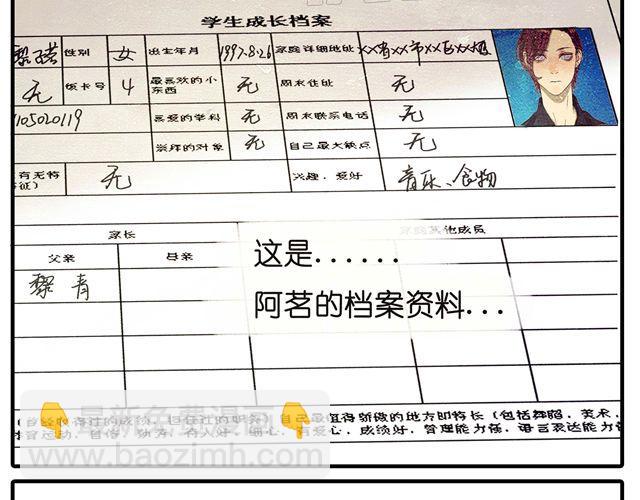 学生成长档案
性别 女 出生年月 1997.8.26 家庭详细地址 XX省XX市XX区XX路
无 饭卡号 4 最喜欢的小东西 无 周末住址 无
105020119 喜爱的学科 无 周末联系电话 无
崇拜的对象 无 自己最大缺点 无
有无特 无 兴趣、爱好 音乐、食物
家长 家庭其他成员
父亲 母亲
黎青
这是......
阿茗的档案资料...
最新免费漫画
(曾经取得过的成绩，担任过的职务) 自己最值得骄傲的地方即特长 (包括舞蹈，美术，
体育运动，自信，勤劳，有人好，细心，有爱心，成绩好，管理能力强，语言表达能力
www.baozimh.com